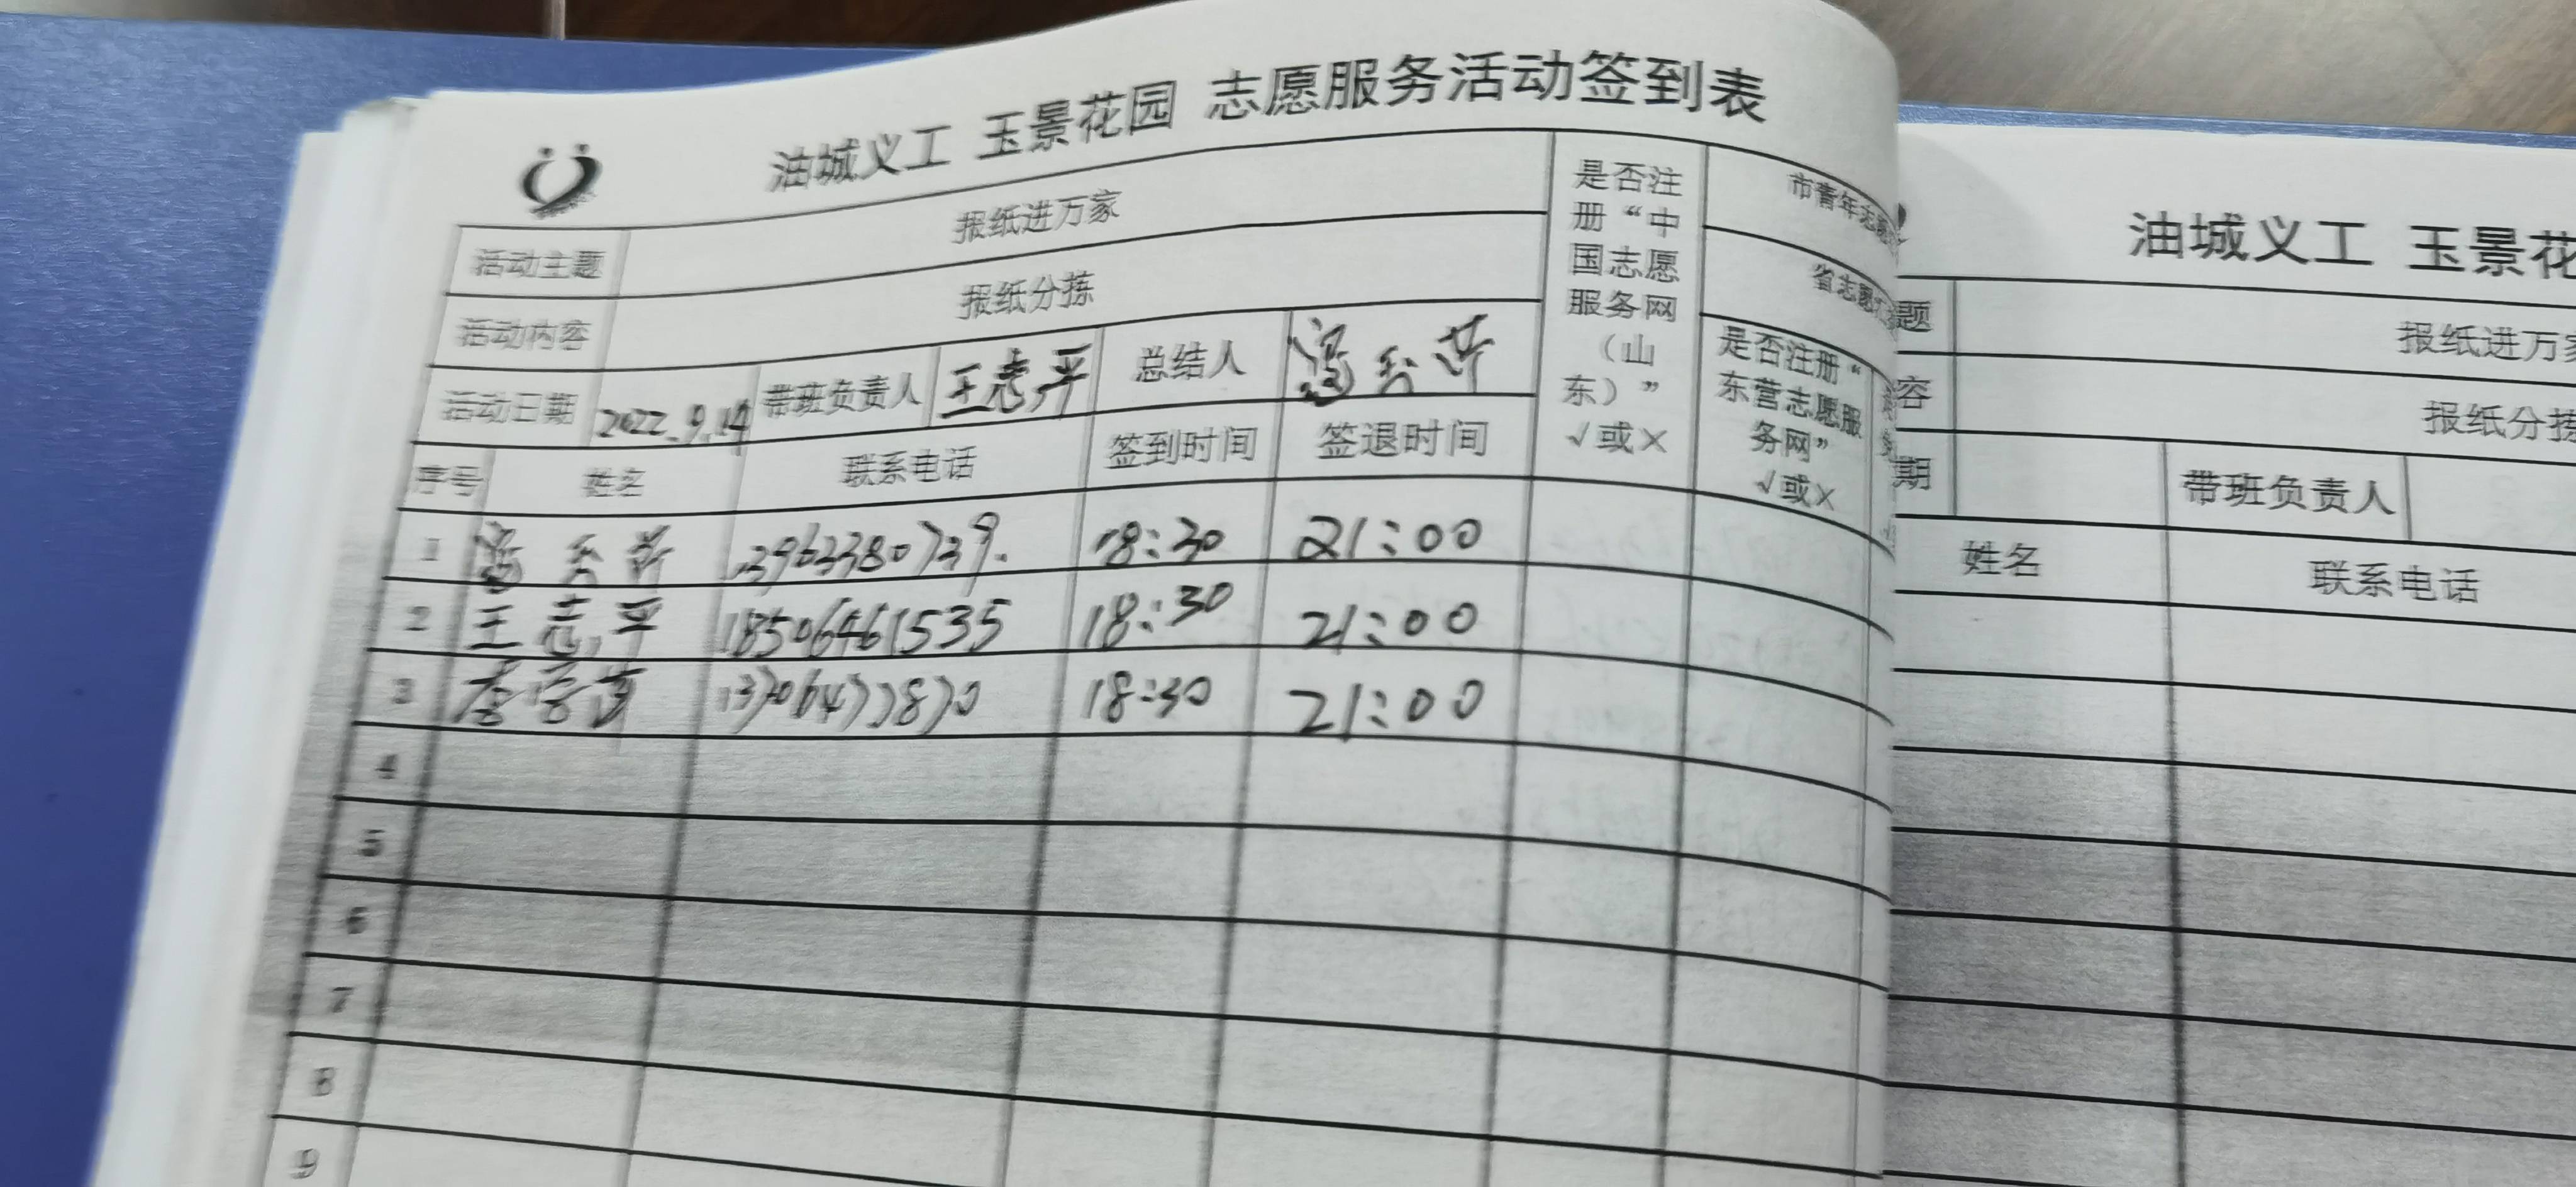 油城义工 玉景花园 志愿服务活动签到表
活动主题 报纸进万家
活动内容 报纸分拣
活动日期 2022.9.14 带班负责人 王志平 总结人
是否注册“中国志愿服务网（山东）” √或×
市青年志愿
省志愿
是否注册“东营志愿服务网” √或×
序号 姓名 联系电话 签到时间 签退时间
1 13963380739. 18:30 21:00
2 王志平 18506461535 18:30 21:00
3 13706477870 18:30 21:00
4
5
6
7
8
9
油城义工 玉景花
题 报纸进万家
容 报纸分拣
期 带班负责人
姓名 联系电话